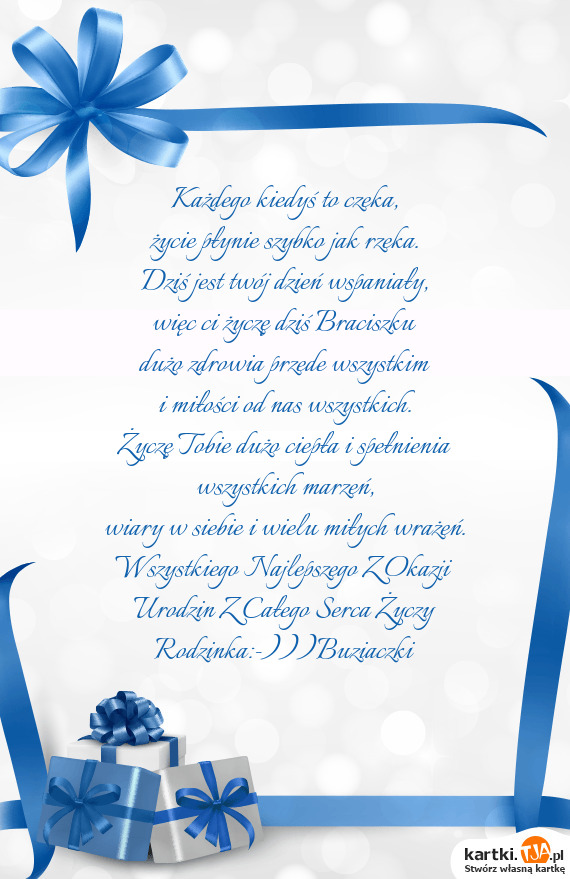 Każdego kiedyś to czeka,
życie płynie szybko jak rzeka.
Dziś jest twój dzień wspaniały,
więc ci życzę dziś Braciszku
dużo zdrowia przede wszystkim
i miłości od nas wszystkich.
Życzę Tobie dużo ciepła i spełnienia
wszystkich marzeń,
wiary w siebie i wielu miłych wrażeń.
Wszystkiego Najlepszego Z Okazji
Urodzin Z Całego Serca Życzy
Rodzinka:-)))Buziaczki
kartki.TJA.pl
Stwórz własną kartkę